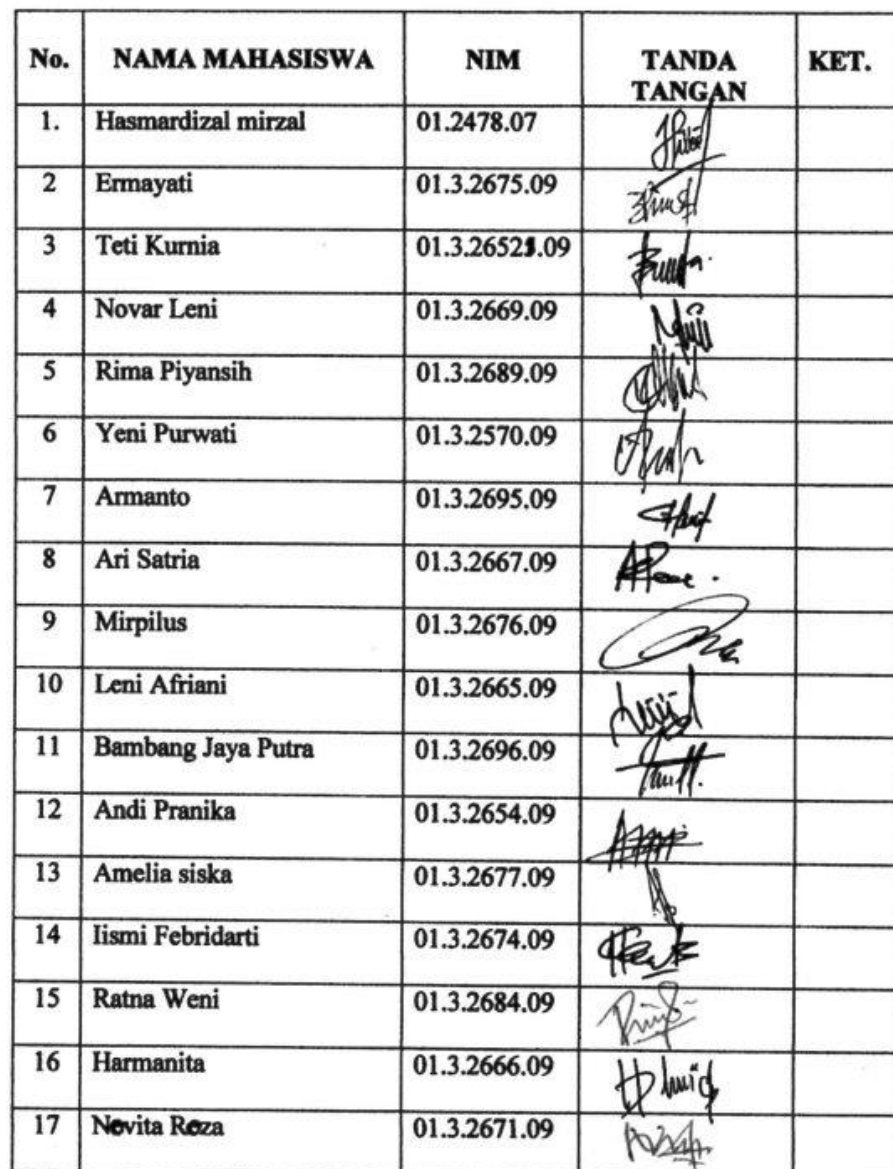 No. NAMA MAHASISWA NIM TANDA TANGAN KET.
1. Hasmardizal mirzal 01.2478.07
2 Ermayati 01.3.2675.09
3 Teti Kurnia 01.3.26521.09
4 Novar Leni 01.3.2669.09
5 Rima Piyansih 01.3.2689.09
6 Yeni Purwati 01.3.2570.09
7 Armanto 01.3.2695.09
8 Ari Satria 01.3.2667.09
9 Mirpilus 01.3.2676.09
10 Leni Afriani 01.3.2665.09
11 Bambang Jaya Putra 01.3.2696.09
12 Andi Pranika 01.3.2654.09
13 Amelia siska 01.3.2677.09
14 Iismi Febridarti 01.3.2674.09
15 Ratna Weni 01.3.2684.09
16 Harmanita 01.3.2666.09
17 Novita Reza 01.3.2671.09